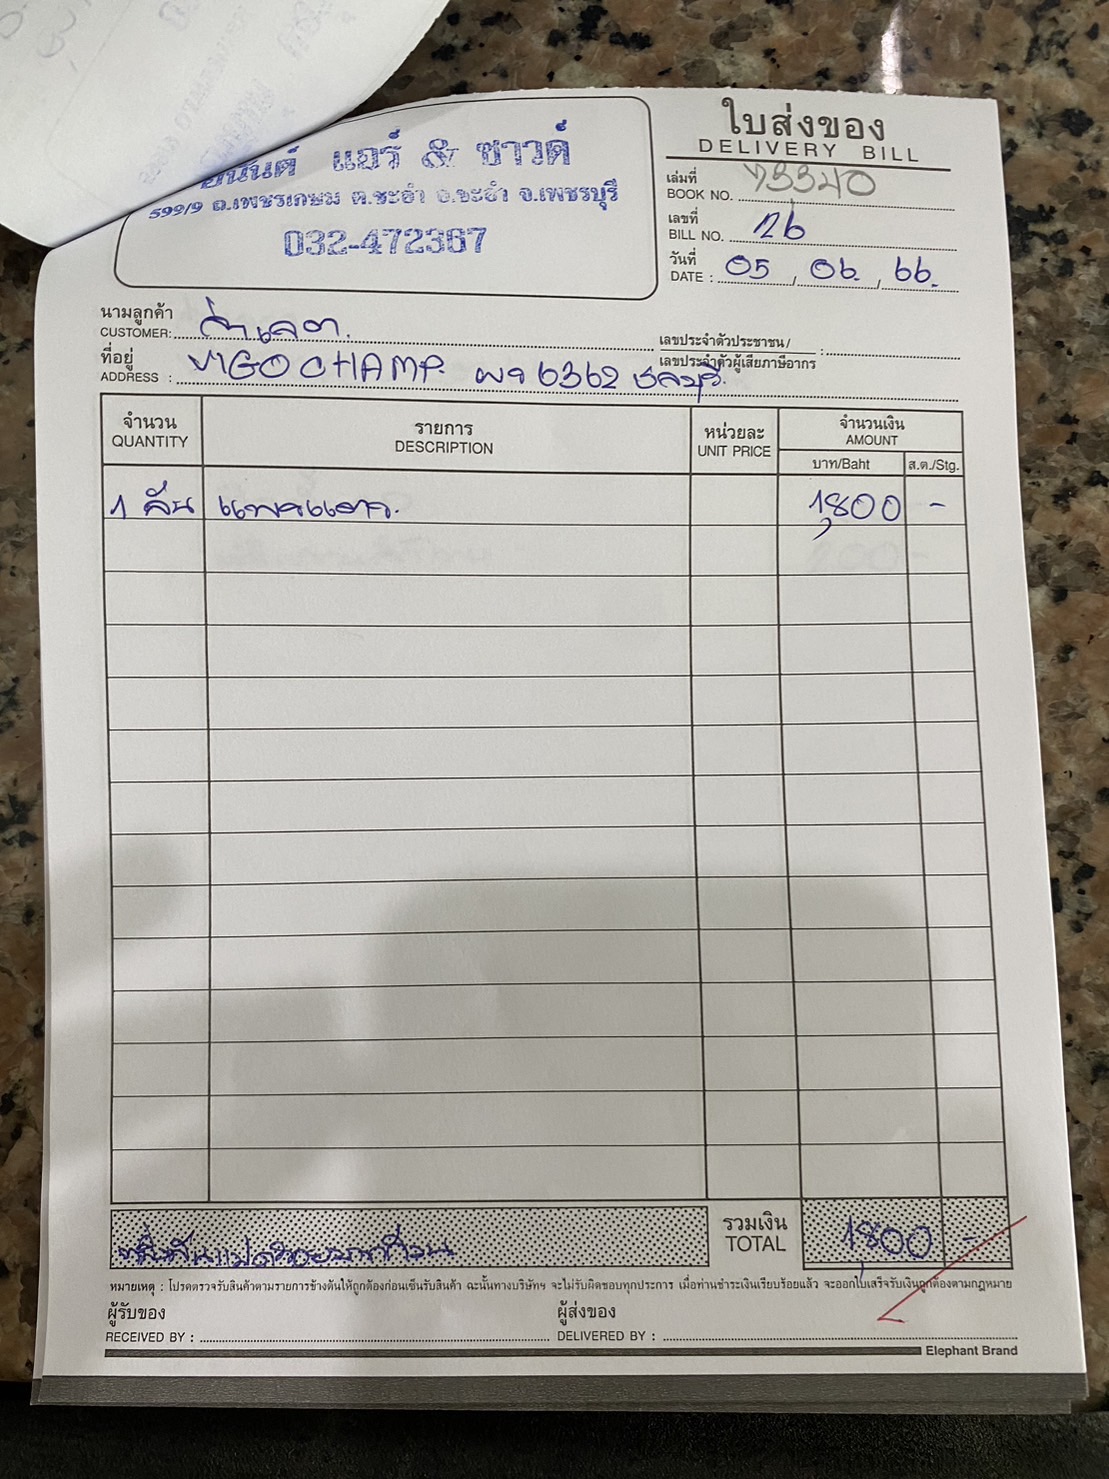 แอร์ & ซาวด์
599/9 ถ.เพชรเกษม ต.ชะอำ อ.ชะอำ จ.เพชรบุรี
032-472367
ใบส่งของ
DELIVERY BILL
เล่มที่
BOOK NO.
เลขที่
BILL NO. 26
วันที่
DATE : 05 / 06. / 66.
นามลูกค้า
CUSTOMER:
เลขประจำตัวประชาชน /
เลขประจำตัวผู้เสียภาษีอากร :
ที่อยู่
ADDRESS : VIGO CHAMP. ผจ 6362 ชลบุรี.
จำนวน รายการ หน่วยละ จำนวนเงิน
QUANTITY DESCRIPTION UNIT PRICE AMOUNT
บาท/Baht ส.ต./Stg.
1 คัน 1,800 -
หนึ่งพันแปดร้อยบาทถ้วน
รวมเงิน
TOTAL 1,800 -
หมายเหตุ : โปรดตรวจรับสินค้าตามรายการข้างต้นให้ถูกต้องก่อนเซ็นรับสินค้า ฉะนั้นทางบริษัทฯ จะไม่รับผิดชอบทุกประการ เมื่อท่านชำระเงินเรียบร้อยแล้ว จะออกใบเสร็จรับเงินถูกต้องตามกฎหมาย
ผู้รับของ ผู้ส่งของ
RECEIVED BY : DELIVERED BY :
Elephant Brand